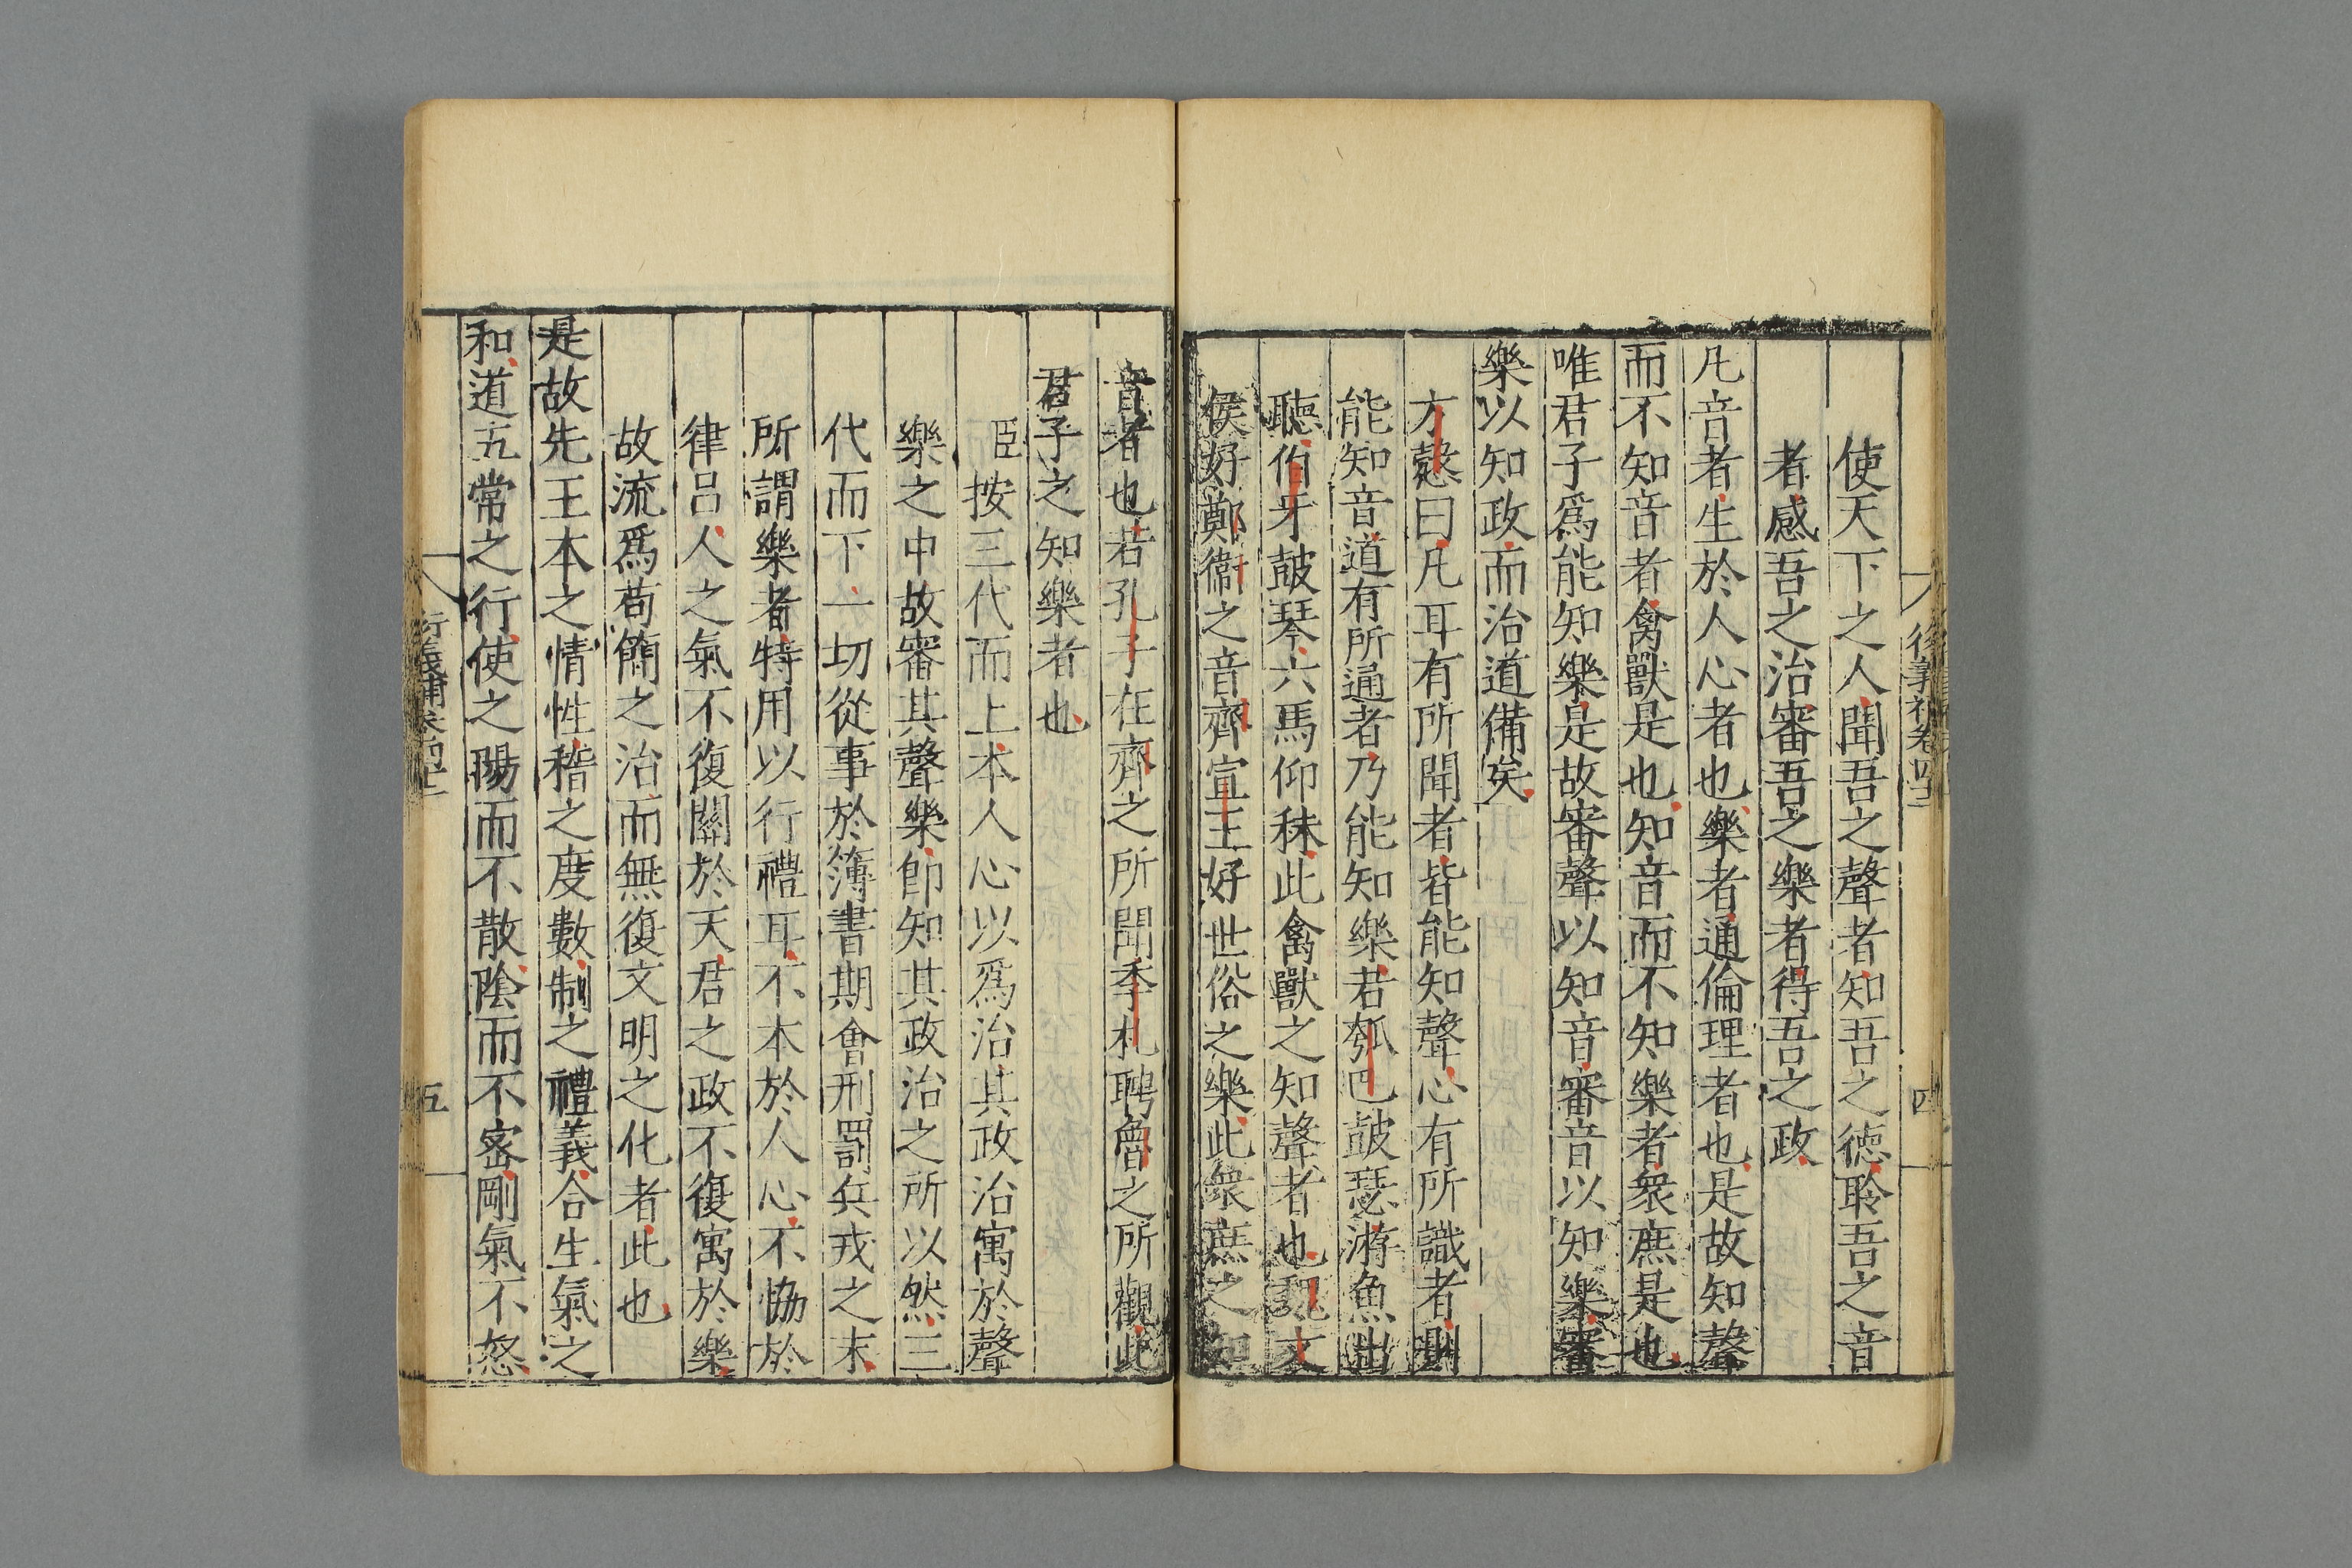 使天下之人聞吾之聲者知吾之德聆吾之音
者感吾之治審吾之樂者得吾之政
凡音者生於人心者也樂者通倫理者也是故知聲
而不知音者禽獸是也知音而不知樂者衆庶是也
唯君子爲能知樂是故審聲以知音審音以知樂審
樂以知政而治道備矣
方慤曰凡耳有所聞者皆能知聲心有所識者則
能知音道有所通者乃能知樂若瓠巴皷瑟游魚出
聽伯牙皷琴六馬仰秣此禽獸之知聲者也魏文
侯好鄭衞之音齊宣王好世俗之樂此衆庶之知
音者也若孔子在齊之所聞季札聘魯之所觀此
君子之知樂者也
臣按三代而上本人心以爲治其政治寓於聲
樂之中故審其聲樂卽知其政治之所以然三
代而下一切從事於簿書期會刑罰兵戎之末
所謂樂者特用以行禮耳不本於人心不恊於
律呂人之氣不復關於天君之政不復寓於樂
故流爲苟簡之治而無復文明之化者此也
是故先王本之情性稽之度數制之禮義合生氣之
和道五常之行使之陽而不散陰而不密剛氣不怒
五